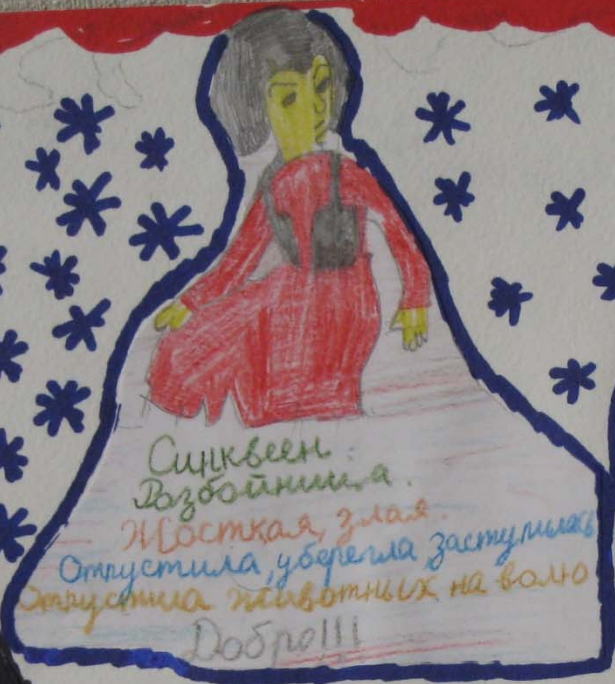 Синквеен
Разбойница.
Жосткая, злая.
Отпустила, уберегла заступилась
Отпустила животных на волю
Добро!!!